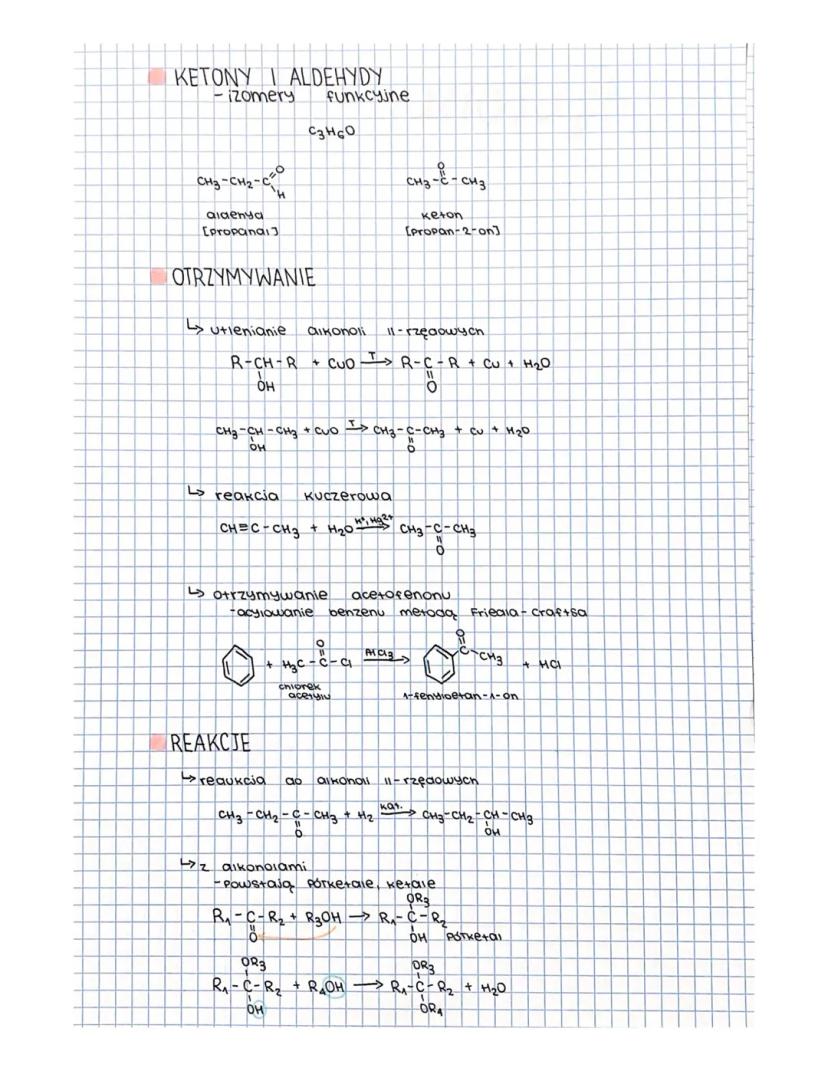 KETONY I ALDEHYDY
- izomery funkcyjne
C3H6O
CH3-CH2-C=O H
CH3-C-CH3 O
aldehyd keton
[propanal] [propan-2-on]
OTRZYMYWANIE
↳ utlenianie alkoholi II-rzędowych
R-CH-R + CuO T→ R-C-R + Cu + H2O
OH O
CH3-CH-CH3 + CuO T→ CH3-C-CH3 + Cu + H2O
OH O
↳ reakcja Kuczerowa
CH≡C-CH3 + H2O H+, Hg2+→ CH3-C-CH3
O
↳ otrzymywanie acetofenonu
-acylowanie benzenu metodą Friedla-Craftsa
O O
+ H3C-C-Cl AlCl3→ C-CH3 + HCl
chlorek
acetylu 1-fenyloetan-1-on
REAKCJE
↳ redukcja do alkoholi II-rzędowych
CH3-CH2-C-CH3 + H2 kat.→ CH3-CH2-CH-CH3
O OH
↳ z alkoholami
-powstają półketale, ketale
OR3
R1-C-R2 + R3OH → R1-C-R2
O OH półketal
OR3 OR3
R1-C-R2 + R4OH → R1-C-R2 + H2O
OH OR4